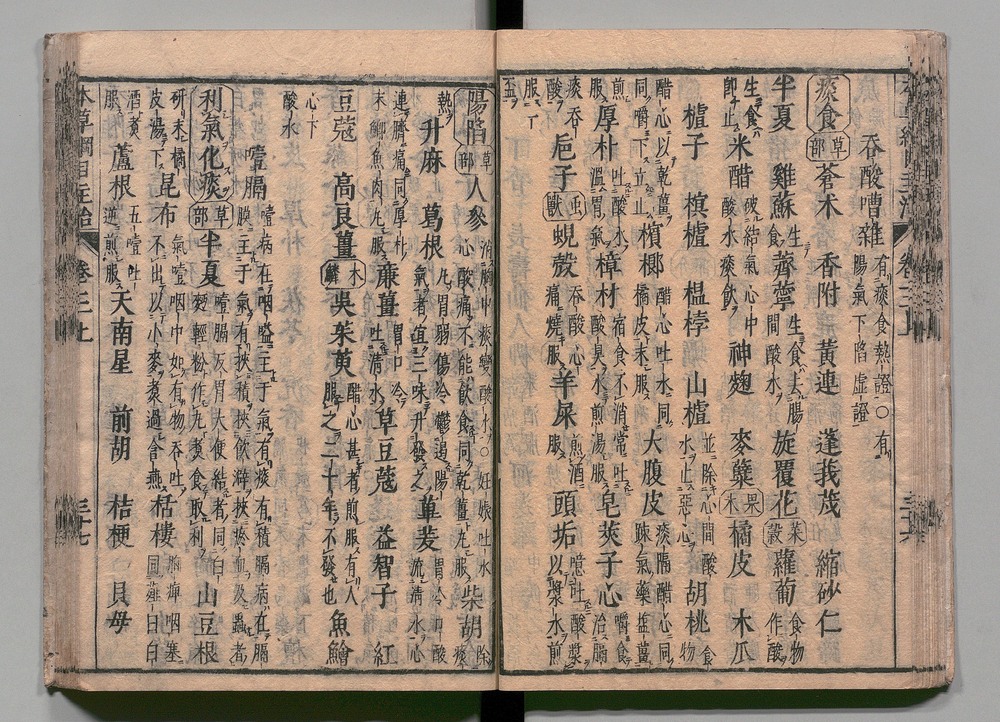 吞酸嘈雜 有痰食熱證○有陽氣下陷虛證
痰食 草部 蒼朮 香附 黃連 蓬莪茂 縮砂仁
半夏 雞蘇 生食 薺薴 生食去腸間酸水 旋覆花 菜穀 蘿蔔 食物作酸
生食即止 米醋 破結氣心中酸水痰飲 神麴 麥糵 果木 橘皮 木瓜
樝子 榠樝 榲桲 山樝 並除心間酸水止惡心 胡桃 食物
醋心以乾薑同嚼下立止 檳榔 醋心吐水同橘皮末服 大腹皮 痰隔醋心同疎氣藥鹽薑
煎服 厚朴 溫胃氣吐酸水 樟材 宿食不消常吐酸臭水煎湯服 皂莢子心 治膈嚼食
痰吞酸 巵子 虫獸 蜆殼 吞酸心痛燒服 羊屎 煎酒服 頭垢 噫吐酸漿以漿水煎
服丁
陽陷 草部 人參 消胸中痰變酸水○妊娠吐水酸心痛不能飲食同乾薑丸服 柴胡 除痰
熱 升麻 葛根 凡胃腸傷冷鬱遏陽氣者宜三味升發之 蓽茇 胃冷口酸流清水心
連臍痛同厚朴末鯽魚肉丸服 廉薑 胃口冷吐清水 草豆蔻 益智子 紅
豆蔻 高良薑 木鱗 吳茱萸 醋心甚者煎服有人服之二十年不發也 魚鱠
心下酸水
噎膈 噎病在咽嗌主于氣有痰有積膈病在膈膜主于氣有挾積挾飲澼挾瘀血及蟲者
利氣化痰 草部 半夏 噎膈反胃大便結者同白麪輕粉作丸煮食取利 山豆根
研末橘皮湯下 昆布 氣噎咽中如有物吞吐不出以小麥煮過含燕 栝樓 胸痺咽塞同薤白白
酒煮服 蘆根 五噎吐逆煎服 天南星 前胡 桔梗 貝母
本草綱目主治 卷三上 三十七